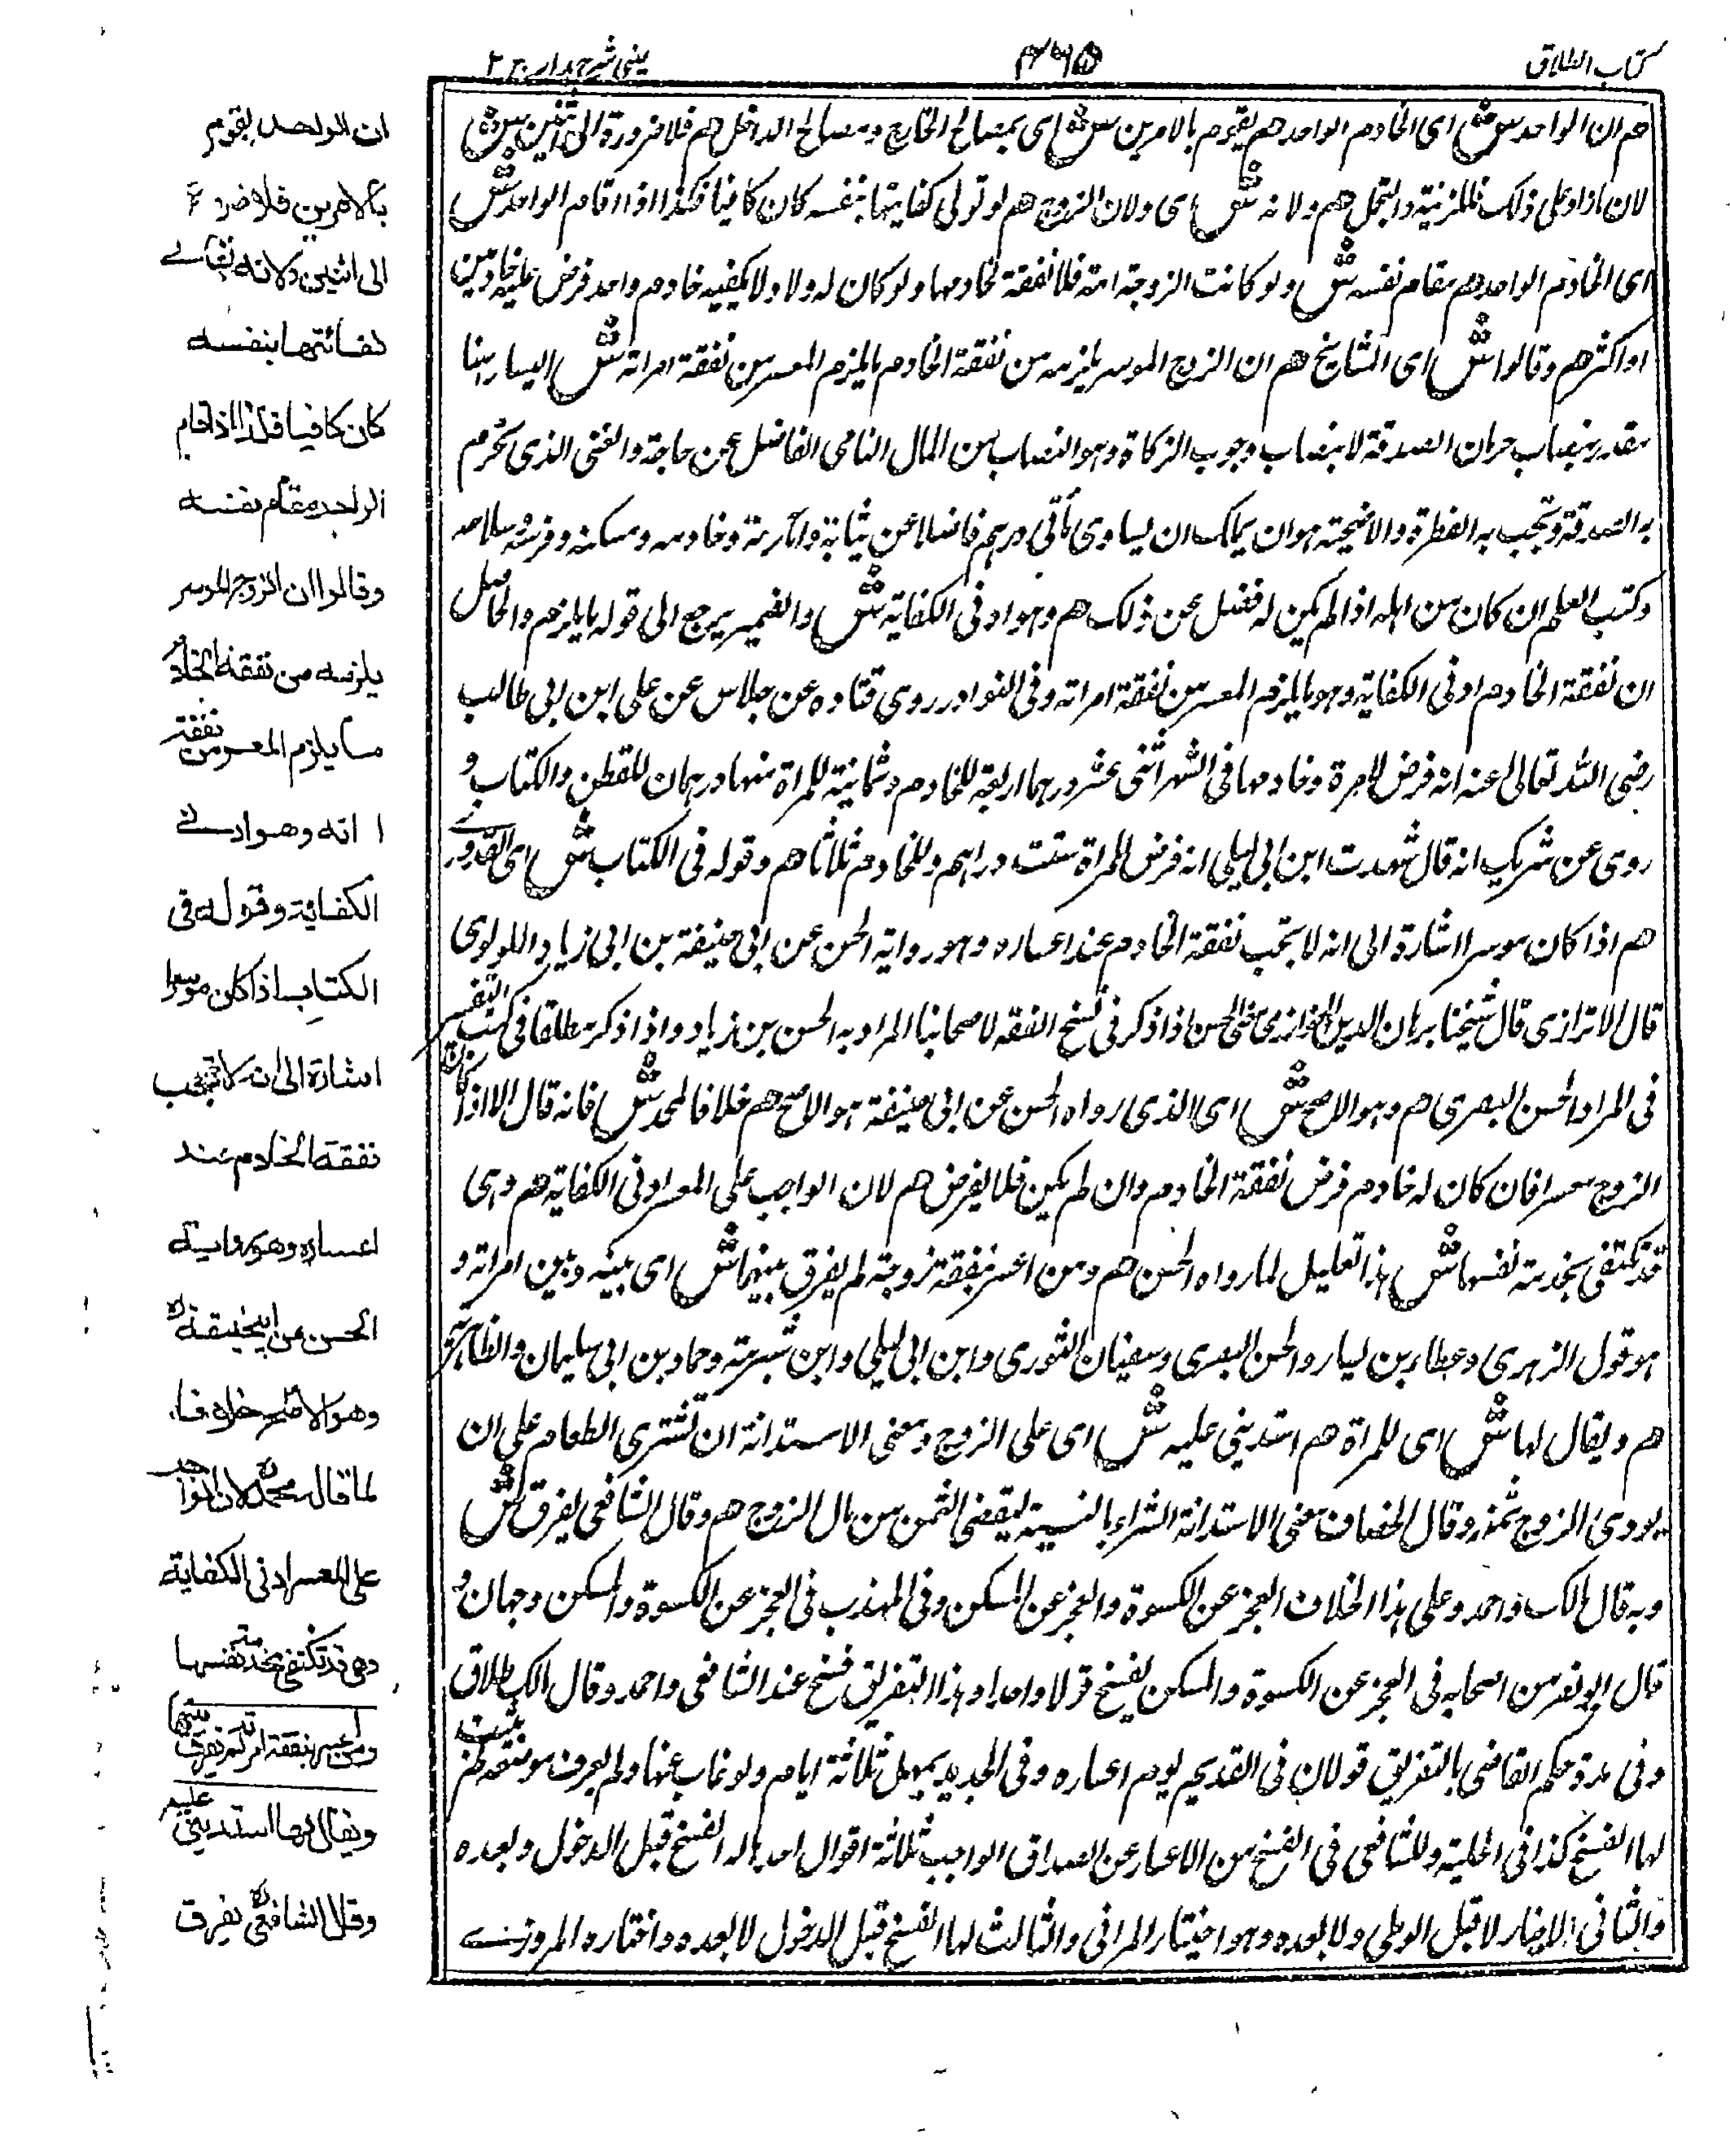 كتاب الطلاق
٤٦٥
عينى شرح هداية ج ٢
هم ان الواحد ش اى الخادم الواحد هم يقوم بالامرين ش اى بمصالح الخارج ومصالح الداخل هم فلا ضرورة الى اثنين ش
لان مازاد على ذلك فللزينة والتجمل هم ولانه ش اى ولان الزوج هم لو تولى كفايتها بنفسه كان كافيا فكذا اذا اقام الواحد ش
اى الخادم الواحد هم مقام نفسه ش ولو كانت الزوجة امة فلا نفقة لخادمها ولو كان له ولاد لا يكفيه خادم واحد فرض عليه خادمين
او اكثر هم وقالوا ش اى المشايخ هم ان الزوج الموسر يلزمه من نفقة الخادم ما يلزم المعسر من نفقة امراته ش اليسار هنا
مقدر بنصاب حرمان الصدقة لا بنصاب وجوب الزكاة وهو النصاب من المال النامى الفاضل عن حاجة والغنى الذى يحرم
به الصدقة وتجب به الفطرة والاضحية هو ان يملك ان يساوى مأتى درهم فاضلا عن ثيابه واثاثه وخادمه ومسكنه وفرسه وسلاحه
وكتب العلم ان كان من اهله اذا لم يكن له فضل عن ذلك هم وهو ادنى الكفاية ش والضمير يرجع الى قوله ما يلزم والحاصل
ان نفقة الخادم ادنى الكفاية وهو ما يلزم المعسر من نفقة امراته وفى النوادر روى قتاده عن جلاس عن على ابن ابى طالب
رضى الله تعالى عنه انه فرض لامرة وخادمها فى الشهر اثنى عشر درهما اربعة للخادم وثمانية للمراة منها درهمان للقطن والكتاب و
روى عن شريك انه قال شهدت ابن ابى ليلى انه فرض للمراة ستت دراهم وللخادم ثلاثا هم وقوله فى الكتاب ش اى القدورى
هم اذا كان موسرا اشارة الى انه لا تجب نفقة الخادم عند اعساره وهو رواية الحسن عن ابى حنيفة بن ابى زياد اللولوى
قال الاترازى قال شيخنا برهان الدين الخوارزمى الحسن اذا ذكر فى نسخ الفقه لاصحابنا المراد به الحسن بن زياد واذا ذكر مطلقا فى كتب التفسير
فى المراد الحسن البصرى هم وهو الاصح ش اى الذى رواه الحسن عن ابى حنيفة هو الاصح هم خلافا لمحمد ش فانه قال الا اذا كان
الزوج معسرا فان كان له خادم فرض نفقة الخادم وان لم يكن فلا يفرض هم لان الواجب على المعسر ادنى الكفاية هم وهى
قد تكتفى بخدمة نفسها ش هذا تعليل لما رواه الحسن هم ومن اعسر بنفقة زوجته لم يفرق بينهما ش اى بينه وبين امراته و
هو قول الزهرى وعطار بن يسار والحسن البصرى وسفيان الثورى وابن ابى ليلى وابن شبرمة وحماد بن ابى سليمان والظاهرية
هم ويقال لها ش اى للمراة هم استدينى عليه ش اى على الزوج ومعنى الاستدانة ان تشترى الطعام على ان
يودى الزوج ثمنه وقال الخصاف معنى الاستدانة الشراء بالنسية ليقضى الثمن من مال الزوج هم وقال الشافعى يفرق ش
وبه قال مالك واحمد وعلى هذا الخلاف العجز عن الكسوة والعجز عن المسكن وفى المهذب فى العجز عن الكسوة والمسكن وجهان و
قال ابو نصر من اصحابه فى العجز عن الكسوة والمسكن يفسخ قولا واحدا وهذا التفريق فسخ عند الشافعى واحمد وقال مالك طلاق
وفى مدة حكم القاضى بالتفريق قولان فى القديم يوم اعساره وفى الجديد يمهل ثلاثة ايام ولو غاب عنها ولم يعرف موضعه لم يثبت
لها الفسخ كذا فى الحلية وللشافعى فى الفسخ من الاعسار عن الصداق الواجب ثلاثة اقوال احدها له الفسخ قبل الدخول وبعده
والثانى الاخيار لا قبل الوطى ولا بعده وهو اختيار المزانى والثالث لها الفسخ قبل الدخول لا بعده واختاره المروزى
ان الواحد يقوم
بالامرين فلا ضرورة
الى اثنين ولانه لو تولى
كفائتها بنفسه
كان كافيا فكذا اذا قام
الواحد مقام نفسه
وقالوا ان الزوج الموسر
يلزمه من نفقة الخادم
ما يلزم المعسر من نفقة
امراته وهو ادنى
الكفاية وقوله فى
الكتاب اذا كان موسرا
اشارة الى انه لا تجب
نفقة الخادم عند
اعساره وهو رواية
الحسن عن ابيحنيفة ره
وهو الاصح خلافا
لما قاله محمد ره لان الواجب
على المعسر ادنى الكفاية
وهى قد تكتفى بخدمة نفسها
ومن اعسر بنفقة امراته لم يفرق بينهما
ويقال لها استدينى عليه
وقال الشافعى ره يفرق